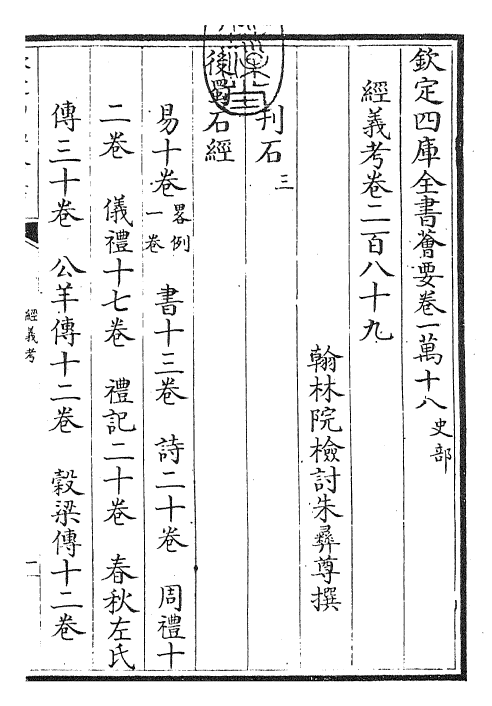 欽定四庫全書薈要卷一萬十八 史部
經義考卷二百八十九
翰林院檢討朱彝尊撰
刋石 三
後蜀石經
易十卷 畧例一卷 書十三卷 詩二十卷 周禮十
二卷 儀禮十七卷 禮記二十卷 春秋左氏
傳三十卷 公羊傳十二卷 穀梁傳十二卷
經義考